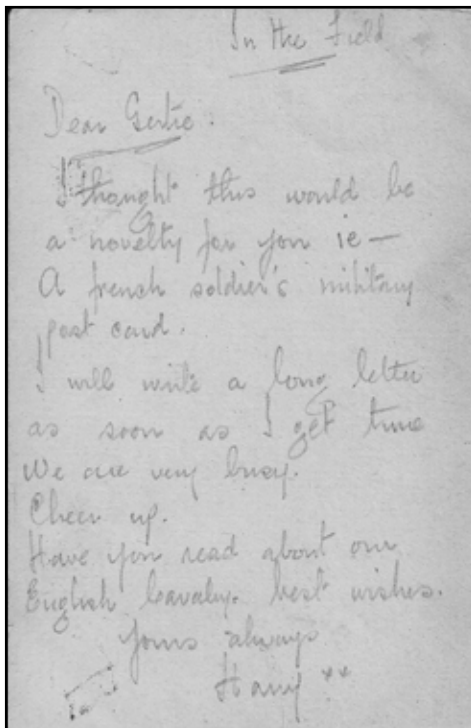 In the Field
Dear Gertie:
I thought this would be
a novelty for you ie —
A french soldier's military
post card.
I will write a long letter
as soon as I get time
We are very busy.
Cheer up.
Have you read about our
English Cavalry. best wishes.
Yours always
Harry xx